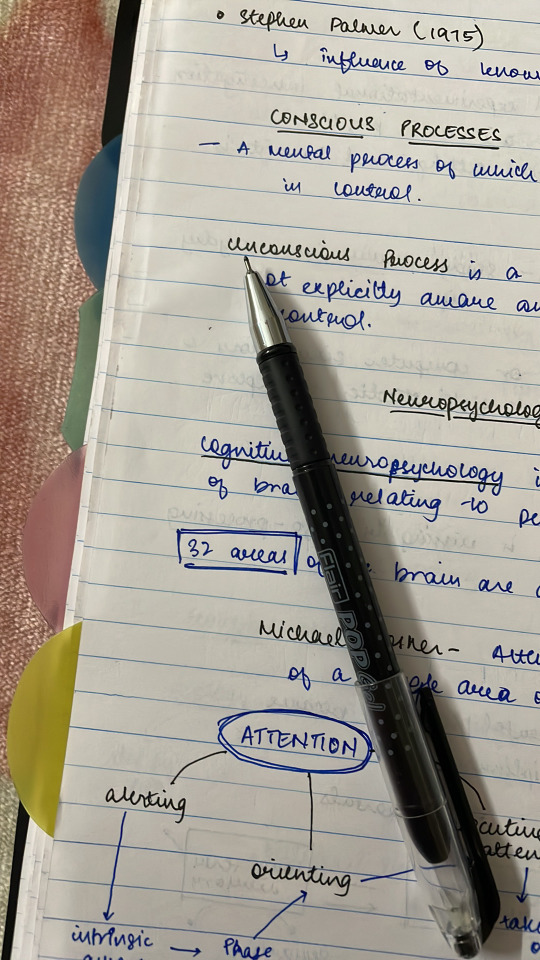 • Stephen Palmer (1975)
↳ influence of know
CONSCIOUS PROCESSES
— A mental process of which
in control.
Unconscious Process is a
ot explicitly aware an
control.
Neuropsycholog
Cognitive neuropsychology i
of brai relating to pe
32 areas of brain are
Michael sner- Atte
of a gle area o
ATTENTION
alerting
orienting
cutive
atten
intrinsic → Phase
take
Flair POP Gel